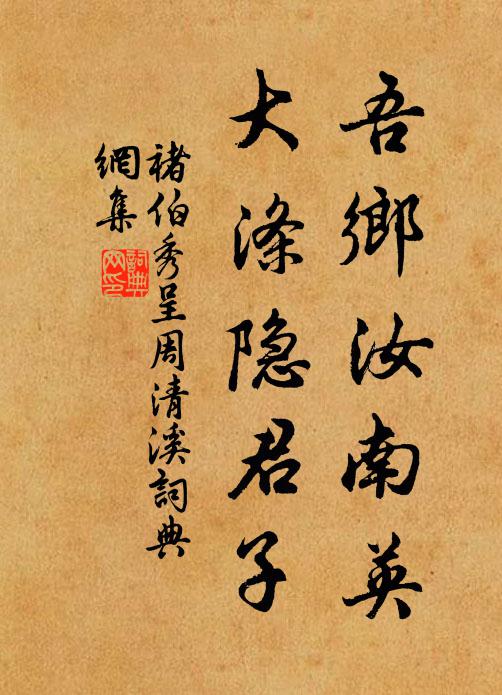 吾鄉汝南英
大滌隐君子
褚伯秀呈周清溪詞典
網集
詞典网印